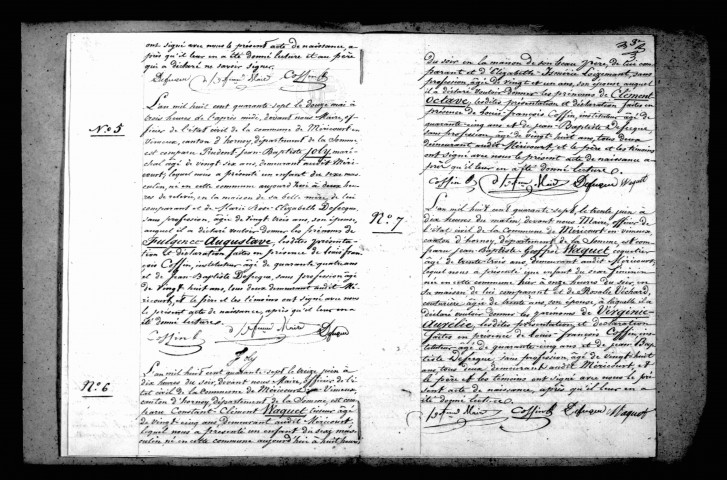 ont signé avec nous le présent acte de naissance, a
près qu'il leur en a été donné lecture et au père
qui a déclaré ne savoir signer.
Coffin
N.o 5
L'an mil huit cent quarante sept le douze mai à
trois heures de l'après midi, devant nous Maire, of-
ficier de l'état civil de la commune de Méricourt en
Vimeux, canton d'hornoy, département de la Somme
est comparu Prudent, Jean-Baptiste Joly, maré-
chal âgé de vingt six ans, demeurant audit Méri-
court, lequel nous a présenté un enfant du sexe mas-
culin, né en cette commune aujourd'hui à deux heu-
res de relevée, en la maison de sa belle mère, de lui
comparant et de Marie Rose Elizabeth Defeque
sans profession, âgée de vingt trois ans, son épouse,
auquel il a déclaré vouloir donner les prénoms de
Fulgence-Augustave, lesdites présenta-
tion et déclaration faites en présence de Louis fran-
çois Coffin, instituteur âgé de quarante quatre ans
et de Jean-Baptiste Defeque, sans profession âgé
de vingt huit ans, tous deux demeurant audit Mé-
ricourt, et le père et les témoins ont signé avec nous
le présent acte de naissance, après qu'il leur en a
été donné lecture.
Coffin
Joly
N.o 6
L'an mil huit cent quarante sept le treize juin à
dix heures du soir, devant nous Maire, officier de l'é-
tat civil de la commune de Méricourt en Vimeux
canton d'hornoy, département de la Somme, est com-
paru Constant-Clément Waquet âgé
de vingt cinq ans demeurant audit Méricourt,
lequel nous a présenté un enfant du sexe mas-
culin, né en cette commune aujourd'hui à huit heures
du soir en la maison de son beau père, de lui com-
parant et d'Elizabeth sans
profession, âgée de vingt et un ans, son épouse, auquel
il a déclaré vouloir donner les prénoms de Clément
Octave, lesdites présentation et déclaration faites en
présence de Louis françois Coffin, instituteur âgé de
quarante cinq ans et de Jean Baptiste Defeque,
sans profession, âgé de vingt huit ans, tous deux
demeurant audit Méricourt, et le père et les témoins
ont signé avec nous le présent acte de naissance a
près qu'il leur en a été donné lecture.
Coffin Waquet
N.o 7
L'an mil huit cent quarante sept, le trente juin à
dix heures du matin, devant nous Maire, officier de
l'état civil de la Commune de Méricourt en vimeux,
canton d'hornoy, département de la Somme, est com-
paru Jean-Baptiste Waquet,
âgé de trente trois ans, demeurant audit Méricourt,
lequel nous a présenté un enfant du sexe féminin,
né en cette commune, hier à onze heures du soir, en
sa maison de lui comparant et de Rosalie Vichard,
couturière âgée de trente ans, son épouse, à laquelle il a
déclaré vouloir donner les prénoms de Virginie
Aurélie, lesdites présentation et déclaration
faites en présence de Louis françois Coffin, ins-
tituteur âgé de quarante cinq ans et de Jean Bap-
tiste Defeque, sans profession, âgé de vingt huit
ans, tous deux demeurant audit Méricourt, et
le père et les témoins ont signé avec nous le pré-
sent acte de naissance, après qu'il leur en a
été donné lecture.
Coffin Waquet